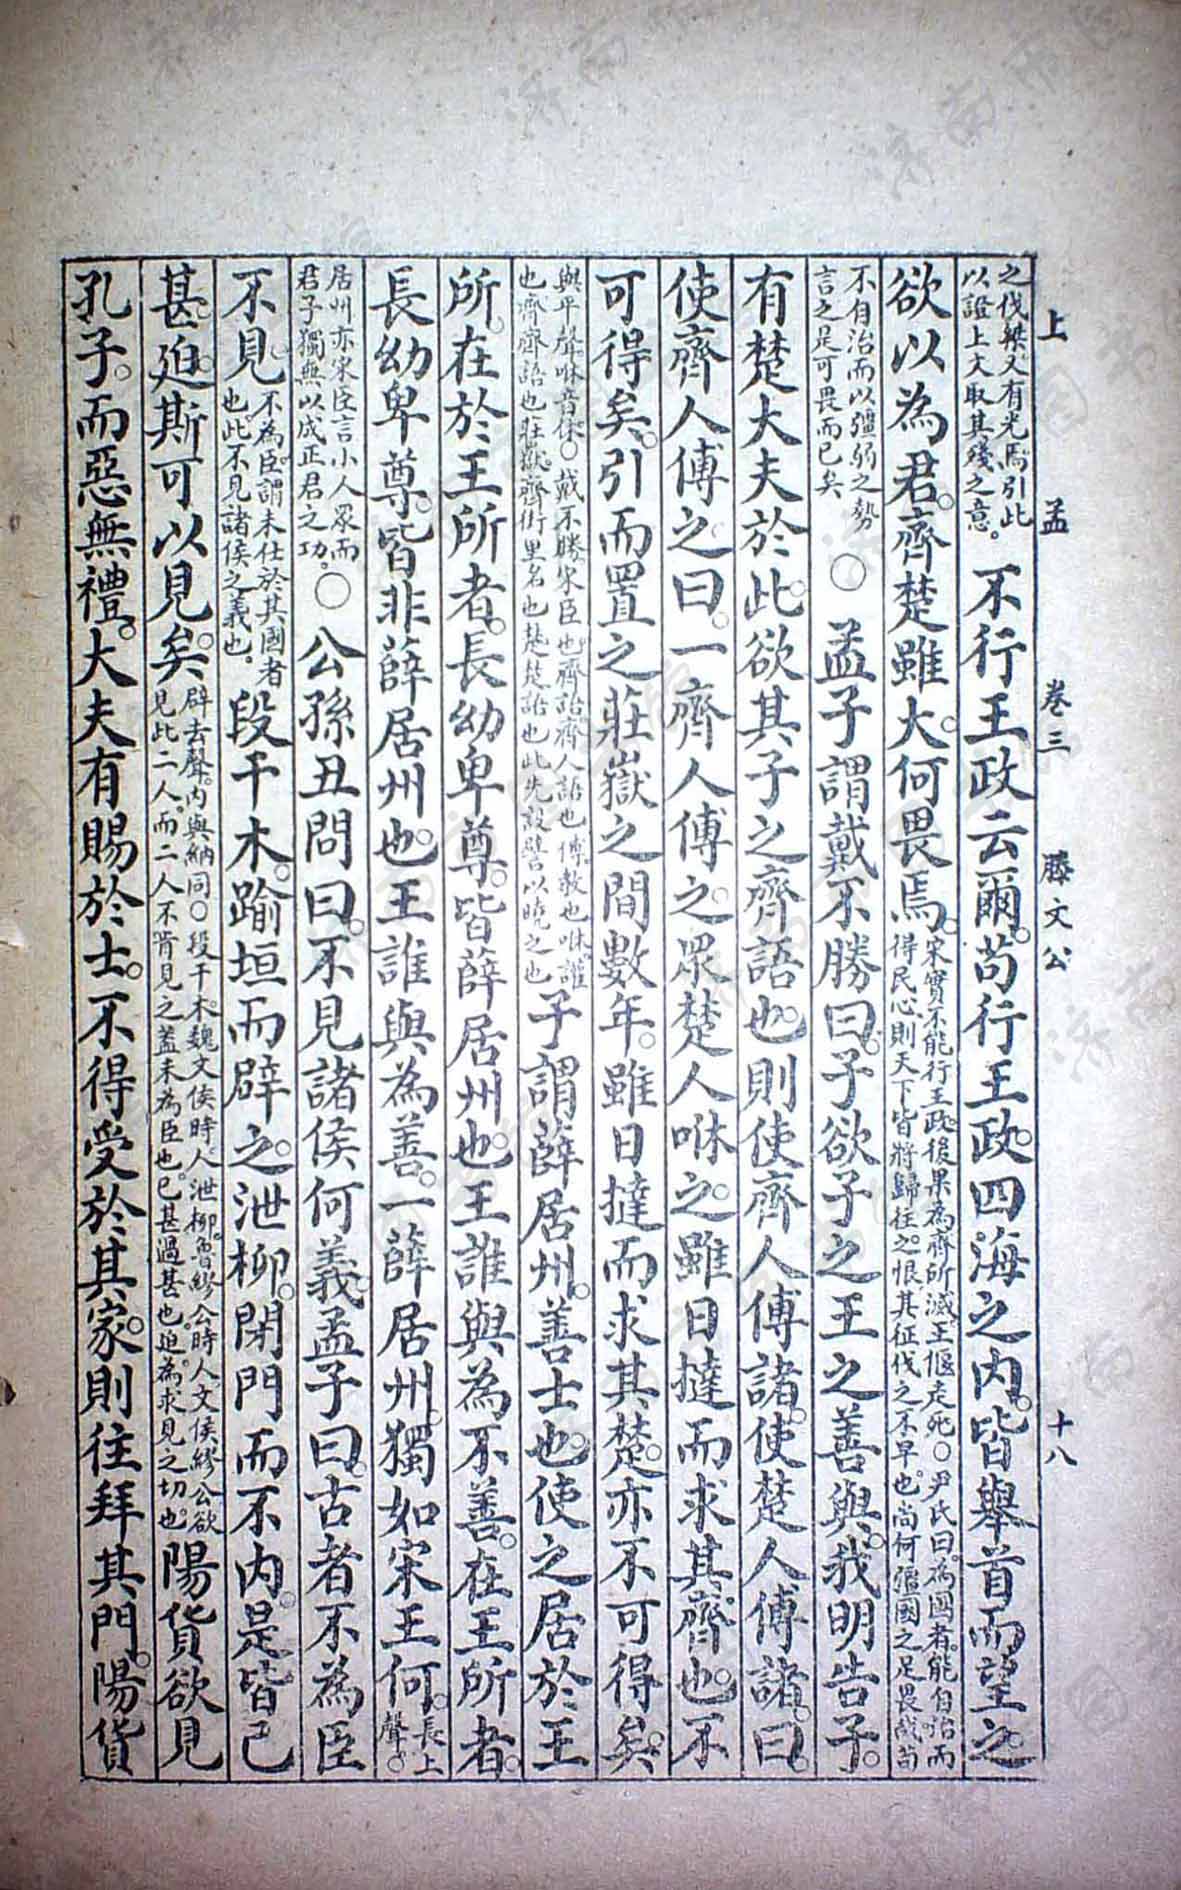 上孟 卷三 滕文公 十八
之伐桀又有光焉引此
以證上文取其殘之意。
不行王政云爾。苟行王政。四海之內。皆舉首而望之
欲以為君。齊楚雖大。何畏焉。
宋實不能行王政。後果為齊所滅。王偃走死。○尹氏曰。為國者。能自治而
得民心。則天下皆將歸往之。恨其征伐之不早也。尚何彊國之足畏哉。苟
不自治而以彊弱之勢
言之。是可畏而已矣
○孟子謂戴不勝曰。子欲子之王之善與。我明告子。
有楚大夫於此。欲其子之齊語也。則使齊人傅諸。使楚人傅諸。曰。
使齊人傅之。曰。一齊人傅之。眾楚人咻之。雖日撻而求其齊也。不
可得矣。引而置之莊嶽之間數年。雖日撻而求其楚。亦不可得矣。
與平聲。咻音休。○戴不勝。宋臣也。齊語。齊人語也。傅。教也。咻。讙
也。齊。齊語也。莊嶽。齊街里名也。楚。楚語也。此先設譬以曉之也
子謂薛居州。善士也。使之居於王
所。在於王所者。長幼卑尊。皆薛居州也。王誰與為不善。在王所者。
長幼卑尊。皆非薛居州也。王誰與為善。一薛居州。獨如宋王何。
長上
聲。○
居州。亦宋臣。言小人眾而
君子獨。無以成正君之功。
○公孫丑問曰。不見諸侯何義。孟子曰。古者不為臣
不見。
不為臣。謂未仕於其國者
也。此不見諸侯之義也。
段干木。踰垣而辟之。泄柳。閉門而不內。是皆已
甚。迫斯可以見矣。
辟去聲。內與納同。○段干木。魏文侯時人。泄柳。魯繆公時人。文侯繆公欲
見此二人。而二人不肯見之。蓋未為臣也。已甚。過甚也。迫。為求見之切也。
陽貨欲見
孔子。而惡無禮。大夫有賜於士。不得受於其家。則往拜其門。陽貨